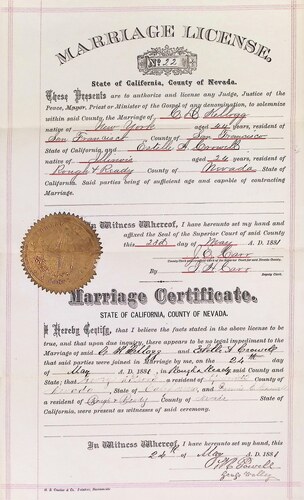 MARRIAGE LICENSE,
No. 32
State of California, County of Nevada.
These Presents are to authorize and license any Judge, Justice of the
Peace, Mayor, Priest or Minister of the Gospel of any denomination, to solemnize
within said County, the Marriage of C. H. Kellogg
native of New York aged 44 years, resident of
San Francisco County of San Francisco
State of California, and Estelle A.
native of Illinois aged 26 years, resident of
Rough & Ready County of Nevada
State of California. Said parties being of sufficient age and capable of contracting
Marriage.
In Witness Whereof, I have hereunto set my hand and
affixed the Seal of the Superior Court of said County
this 23d day of May A.D. 1881
J. E. Carr
By J. H. Carr
Deputy Clerk.
Marriage Certificate.
STATE OF CALIFORNIA, COUNTY OF NEVADA.
I Hereby Certify, that I believe the facts stated in the above license to be
true, and that upon due inquiry, there appears to be no legal impediment to the
Marriage of said C. H. Kellogg and Estelle
that said parties were joined in Marriage by me, on the 24th day of
May A.D. 1881 in Rough & Ready said County and
State; that a resident of
County of
a resident of Rough & Ready County of State of
California, were present as witnesses of said ceremony.
In Witness Whereof, I have hereunto set my hand, this
24th day of May A.D. 1881